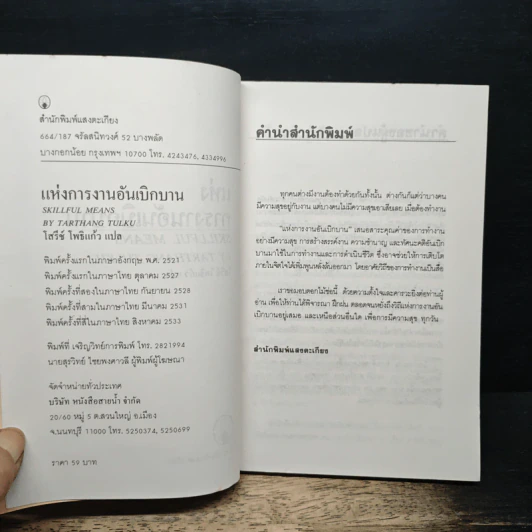 สำนักพิมพ์แสงตะเกียง
664/187 จรัลสนิทวงศ์ 52 บางพลัด
บางกอกน้อย กรุงเทพฯ 10700 โทร. 4243476, 4334994
แห่งการงานอันเบิกบาน
SKILLFUL MEANS
BY TARTHANG TULKU
โสรีช์ โพธิแก้ว แปล
พิมพ์ครั้งแรกในภาษาอังกฤษ พ.ศ. 2521
พิมพ์ครั้งแรกในภาษาไทย ตุลาคม 2527
พิมพ์ครั้งที่สองในภาษาไทย กันยายน 2528
พิมพ์ครั้งที่สามในภาษาไทย มีนาคม 2531
พิมพ์ครั้งที่สี่ในภาษาไทย สิงหาคม 2533
พิมพ์ที่ เจริญวิทย์การพิมพ์ โทร. 2821994
นายสุรวิทย์ ไชยพงศาวลี ผู้พิมพ์ผู้โฆษณา
จัดจำหน่ายทั่วประเทศ
บริษัท หนังสือสายน้ำ จำกัด
20/60 หมู่ 5 ต.สวนใหญ่ อ.เมือง
จ.นนทบุรี 11000 โทร. 5250374, 5250699
ราคา 59 บาท
คำนำสำนักพิมพ์
ทุกคนต่างมีงานต้องทำด้วยกันทั้งนั้น ต่างกันก็แต่ว่าบางคน
มีความสุขอยู่กับงาน แต่บางคนไม่มีความสุขเอาเสียเลย เมื่อต้องทำงาน
"แห่งการงานอันเบิกบาน" เสนอสาระคุณค่าของการทำงาน
อย่างมีความสุข การสร้างสรรค์งาน ความชำนาญ และทัศนะคติอันเบิก
บานมาใช้ในการทำงานและการดำเนินชีวิต ซึ่งอาจช่วยให้การเติบโต
ภายในจิตใจได้เพิ่มพูนหลั่งล้นออกมา โดยอาศัยวิถีของการทำงานเป็นสื่อ
เราขอมอบดอกไม้ช่อนี้ ด้วยความตั้งใจและคารวะยิ่งต่อท่านผู้
อ่าน เพื่อให้ท่านได้พิจารณา ฝึกฝน ตลอดจนหยั่งถึงวิถีแห่งการงานอัน
เบิกบานอยู่เสมอ และเหนือส่วนอื่นใด เพื่อการมีความสุข ทุกวัน
สำนักพิมพ์แสงตะเกียง